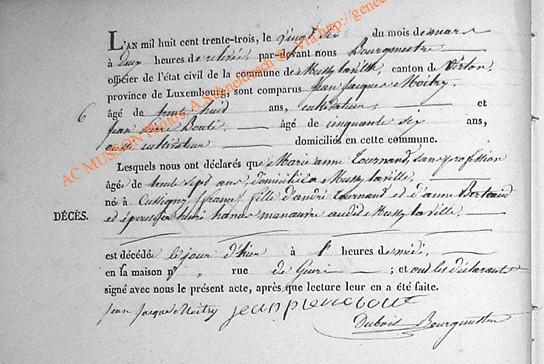 L'AN mil huit cent trente-trois, le vingt six du mois de mars
à deux heures de relevée, par-devant nous Bourgmestre
officier de l'état civil de la commune de Mussy la ville, canton de Virton,
province de Luxembourg, sont comparus Jean Jacques Moitry,
6 âgé de trente huit ans, cultivateur, et
Jean Pierre Bodut âgé de cinquante six ans,
aussi cultivateur domiciliés en cette commune.
Lesquels nous ont déclarés que Marie anne Tournand, sans profession
âgée de trente sept ans, domiciliée à Mussy la ville,
né à Cutigny france, fille d'andré Tournand et d'anne Bertrand
DÉCÈS.
et épouse de henri hanus manœuvre audit Mussy la ville,
est décédée le jour d'hier à heures de midi,
en sa maison n° rue de ; et ont les déclarants
signé avec nous le présent acte, après que lecture leur en a été faite.
jean jacques Moitry jean pierre bodut
Dubois Bourgmestre
AC MUSSON Photos: A. via http://genea